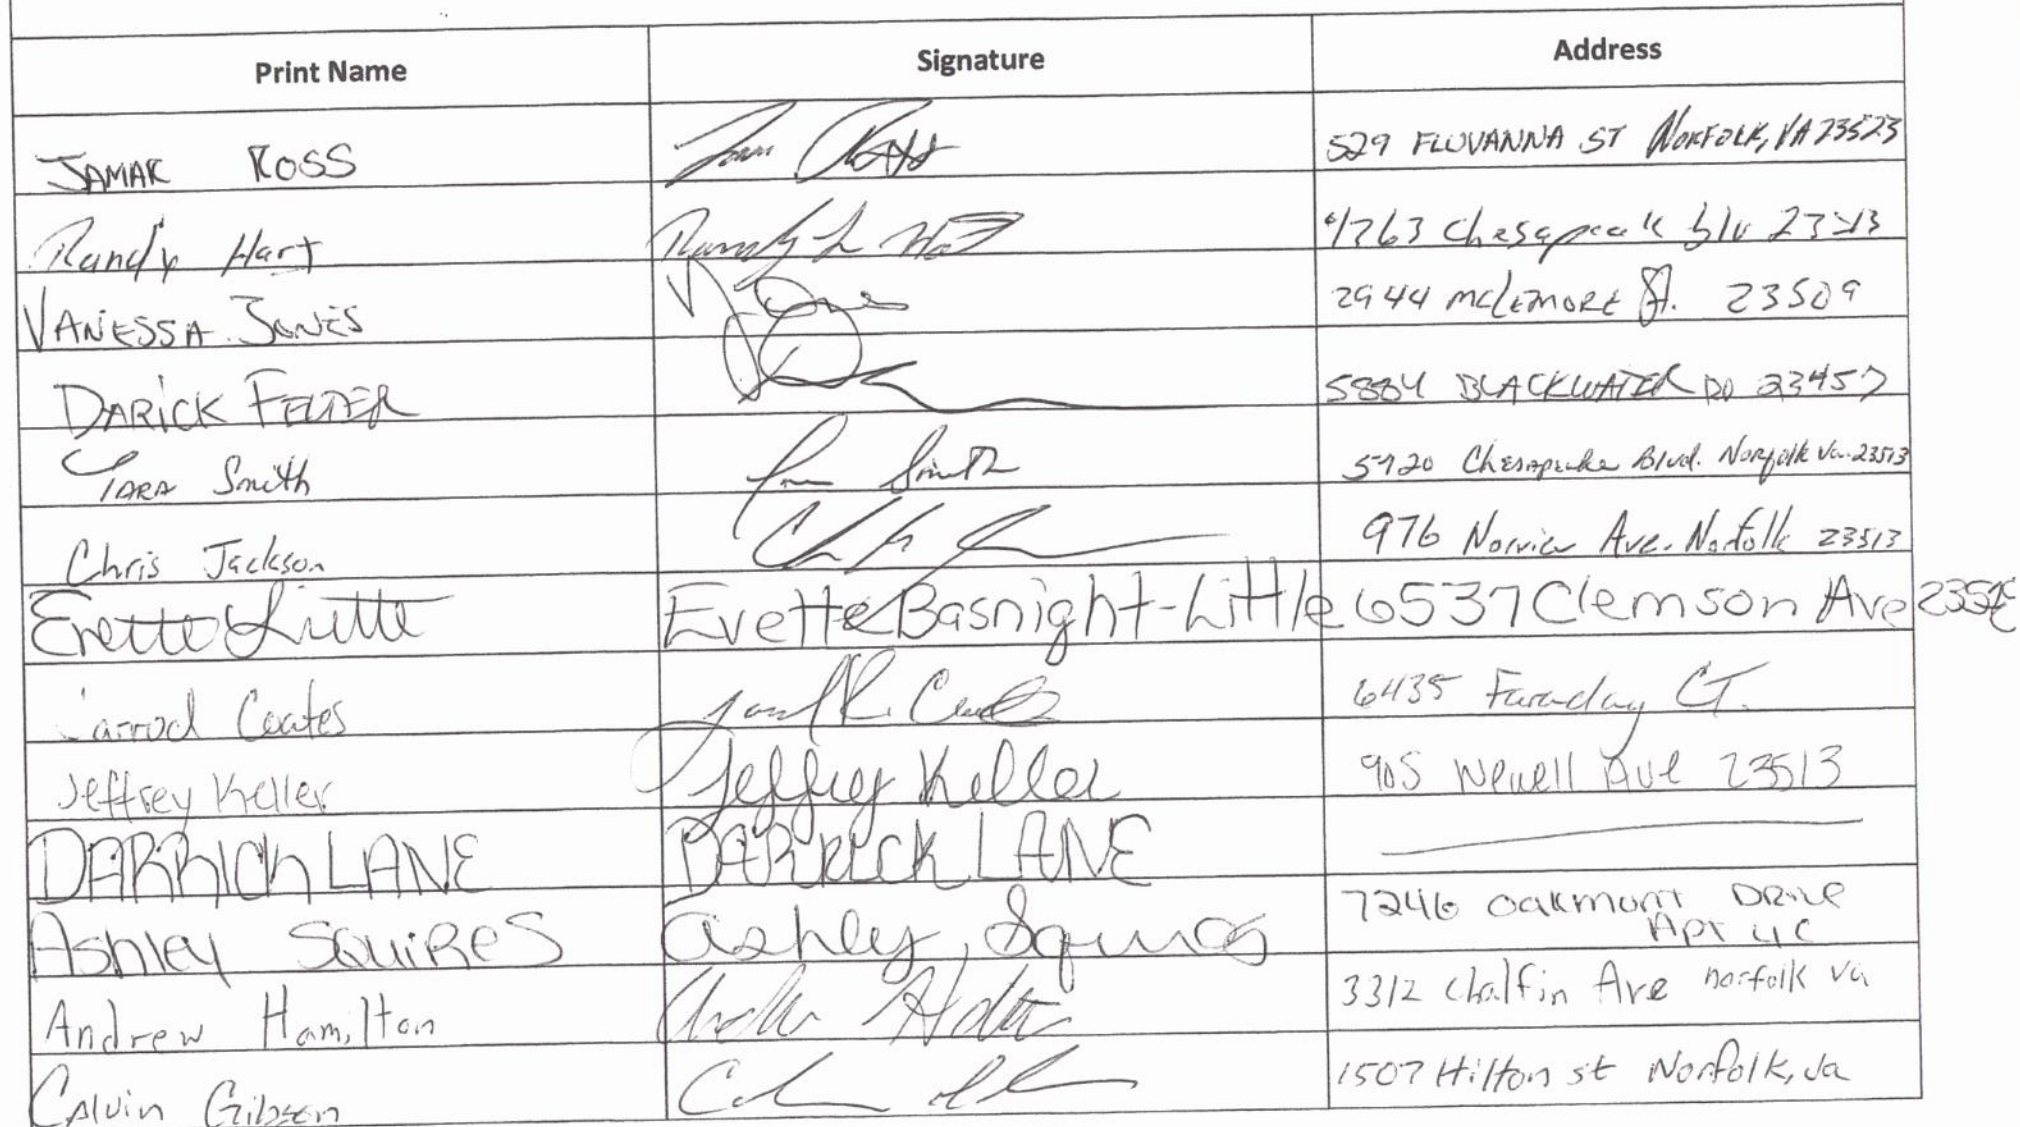 Print Name Signature Address
JAMAR ROSS 529 FLUVANNA ST NORFOLK, VA 23523
Randy Hart Randy L Hart Chesapeak blv
VANESSA JONES 2944 McLEMORE St. 23509
DARICK FELDER 5884 BLACKWATER RD 23457
TARA Smith Smith Chesapeake Blvd. Norfolk Va. 23513
Chris Jackson 976 Norview Ave. Norfolk 23513
Evette Little Evette Basnight-Little 6537 Clemson Ave
Jarrod Coates 6435 Faraday CT.
Jeffrey Keller Jeffrey Keller 905 Wewell Ave 23513
DARRICK LANE DARRICK LANE
Ashley SQUIRES Ashley Squires 7246 Oakmont DRive
Apt 4C
Andrew Hamilton 3312 Chalfin Ave norfolk va
CAlvin Gibson 1507 Hilton st Norfolk, va